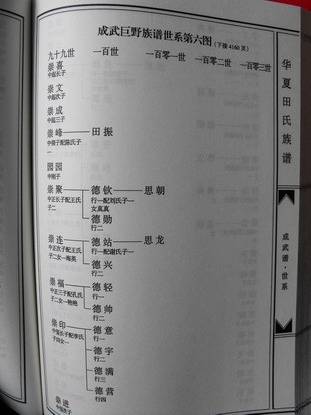 成武巨野族谱世系第六图（下接4160页）
九十九世 一百世 一百零一世 一百零二世 一百零三世
崇喜
中起长子
崇文
中起次子
崇成
中起三子
崇峰 田振
子一
园园
崇聚 德钦 思朝
中正长子配王氏 行一配刘氏子一
子二 女真真
德勋
行二
崇连 德站 思龙
中正次子配王氏 行一配谢氏子一
子二女一海英
德兴
行二
崇福 德轻
中正三子配孔氏 行一
子二女一艳艳
德帅
行二
崇印 德意
行一
德宇
行二
德满
行三
德营
行四
崇进
华夏田氏族谱
成武谱·世系